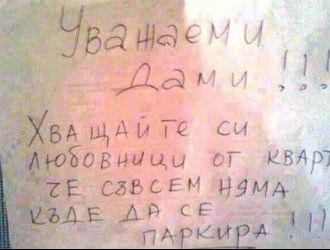 Уважаеми
Дами!!!
ХВАЩАЙТЕ СИ
ЛЮБОВНИЦИ ОТ КВАРТ
ЧЕ СЪВСЕМ НЯМА
КЪДЕ ДА СЕ
ПАРКИРА!!!